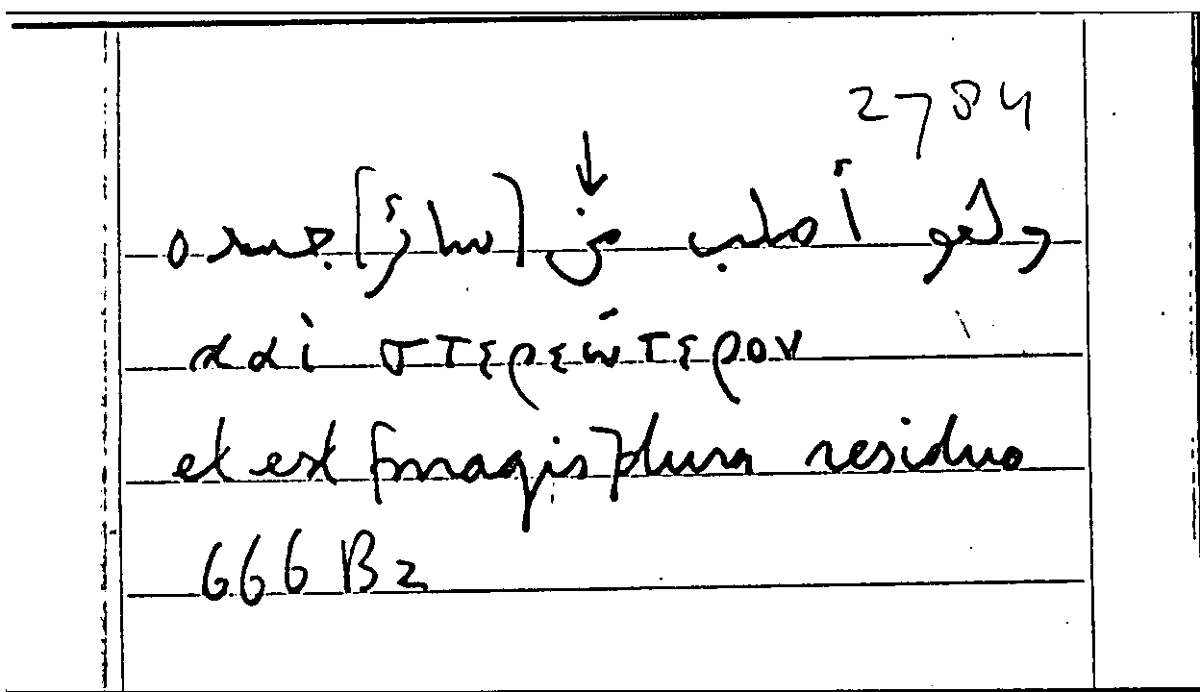 2784
وهو أصلب من [سائر] جسده
καὶ στερεώτερον
et est [magis] dura residuo
666 B2